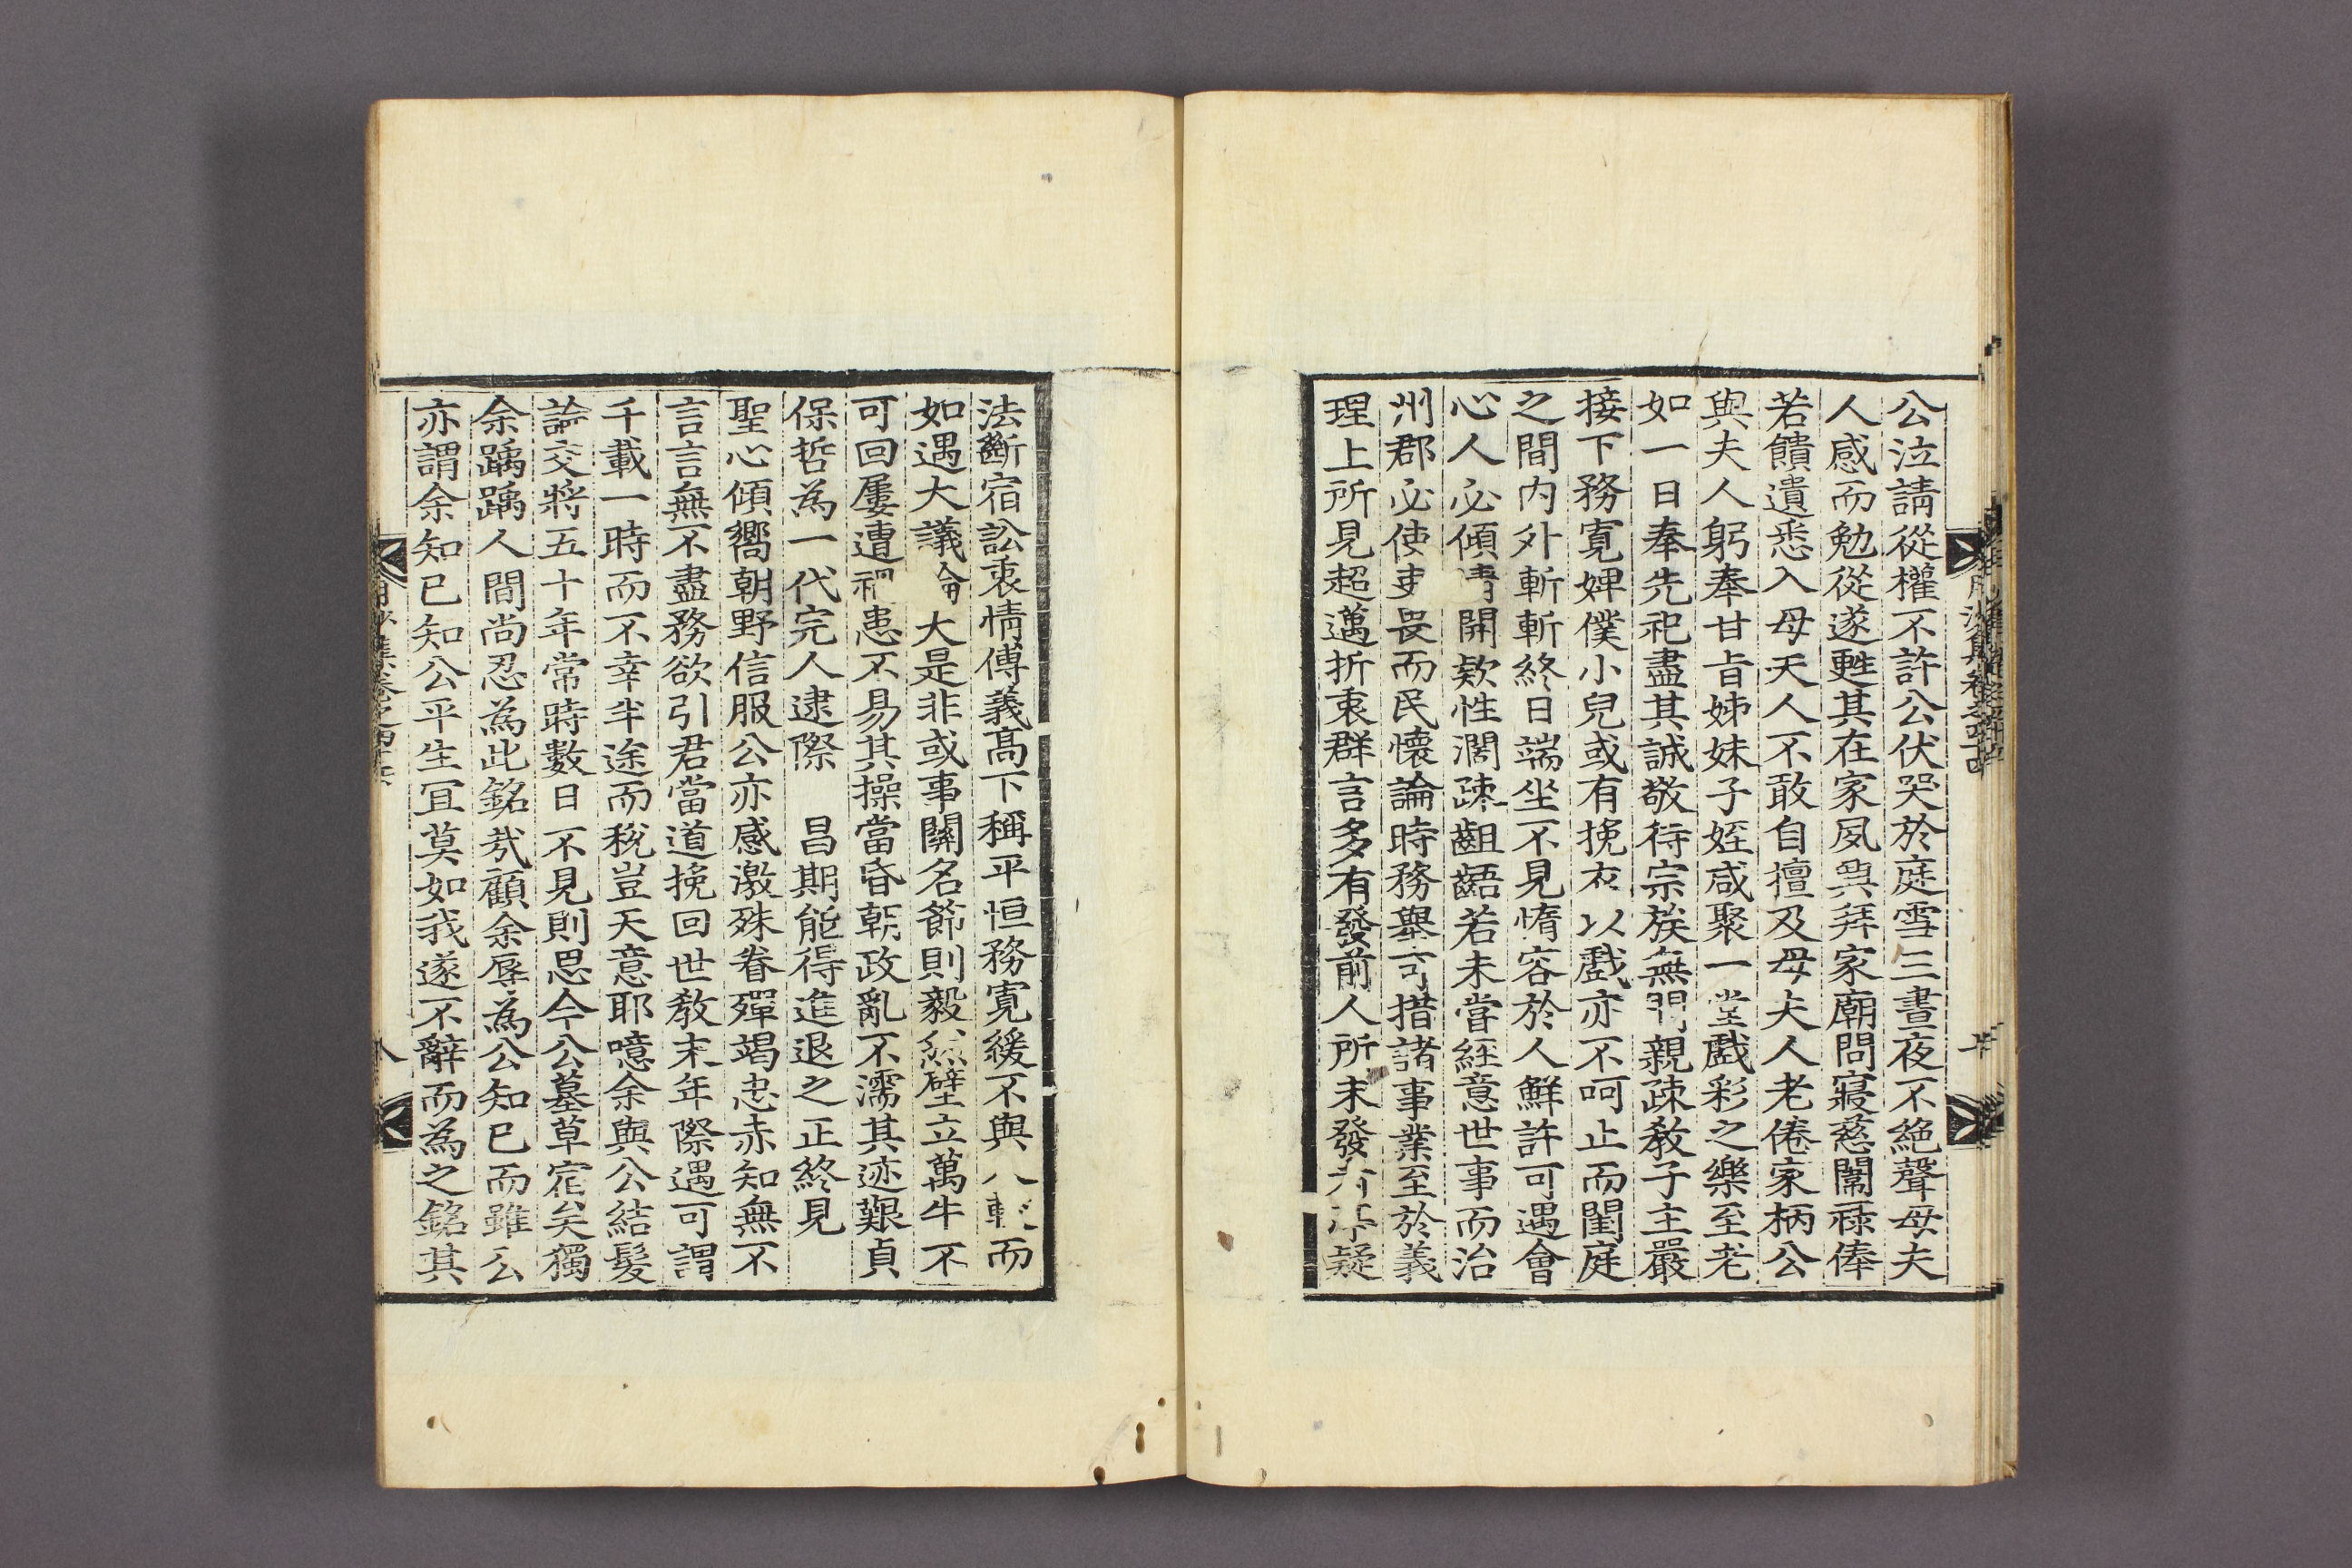 公泣請從權不許公伏哭於庭雪三晝夜不絕聲母夫
人感而勉從遂甦其在家夙興拜家廟問寢慈闈祿俸
若饋遺悉入母夫人不敢自擅及母夫人老倦家柄公
與夫人躬奉甘旨姊妹子姪咸聚一堂戲彩之樂至老
如一日奉先祀盡其誠敬待宗族無間親疎敎子主嚴
接下務寬婢僕小兒或有挽衣以戲亦不呵止而閨庭
之間內外斬斬終日端坐不見惰容於人鮮許可遇會
心人必傾情開欵性濶疎齟齬若未嘗經意世事而治
州郡必使吏畏而民懷論時務擧可措諸事業至於義
理上所見超邁折衷群言多有發前人所未發者讞疑
法斷宿訟衷情傅義高下稱平恒務寬緩不與人較而
如遇大議論大是非或事關名節則毅然壁立萬牛不
可回屢遭禍患不易其操當昏朝政亂不濡其迹艱貞
保哲為一代完人逮際 昌期能得進退之正終見
聖心傾嚮朝野信服公亦感激殊眷殫竭忠赤知無不
言言無不盡務欲引君當道挽回世敎末年際遇可謂
千載一時而不幸半途而稅豈天意耶噫余與公結髮
論交將五十年常時數日不見則思今公墓草宿矣獨
余踽踽人間尚忍為此銘㢤顧余辱為公知已而雖公
亦謂余知已知公平生冝莫如我遂不辭而為之銘其